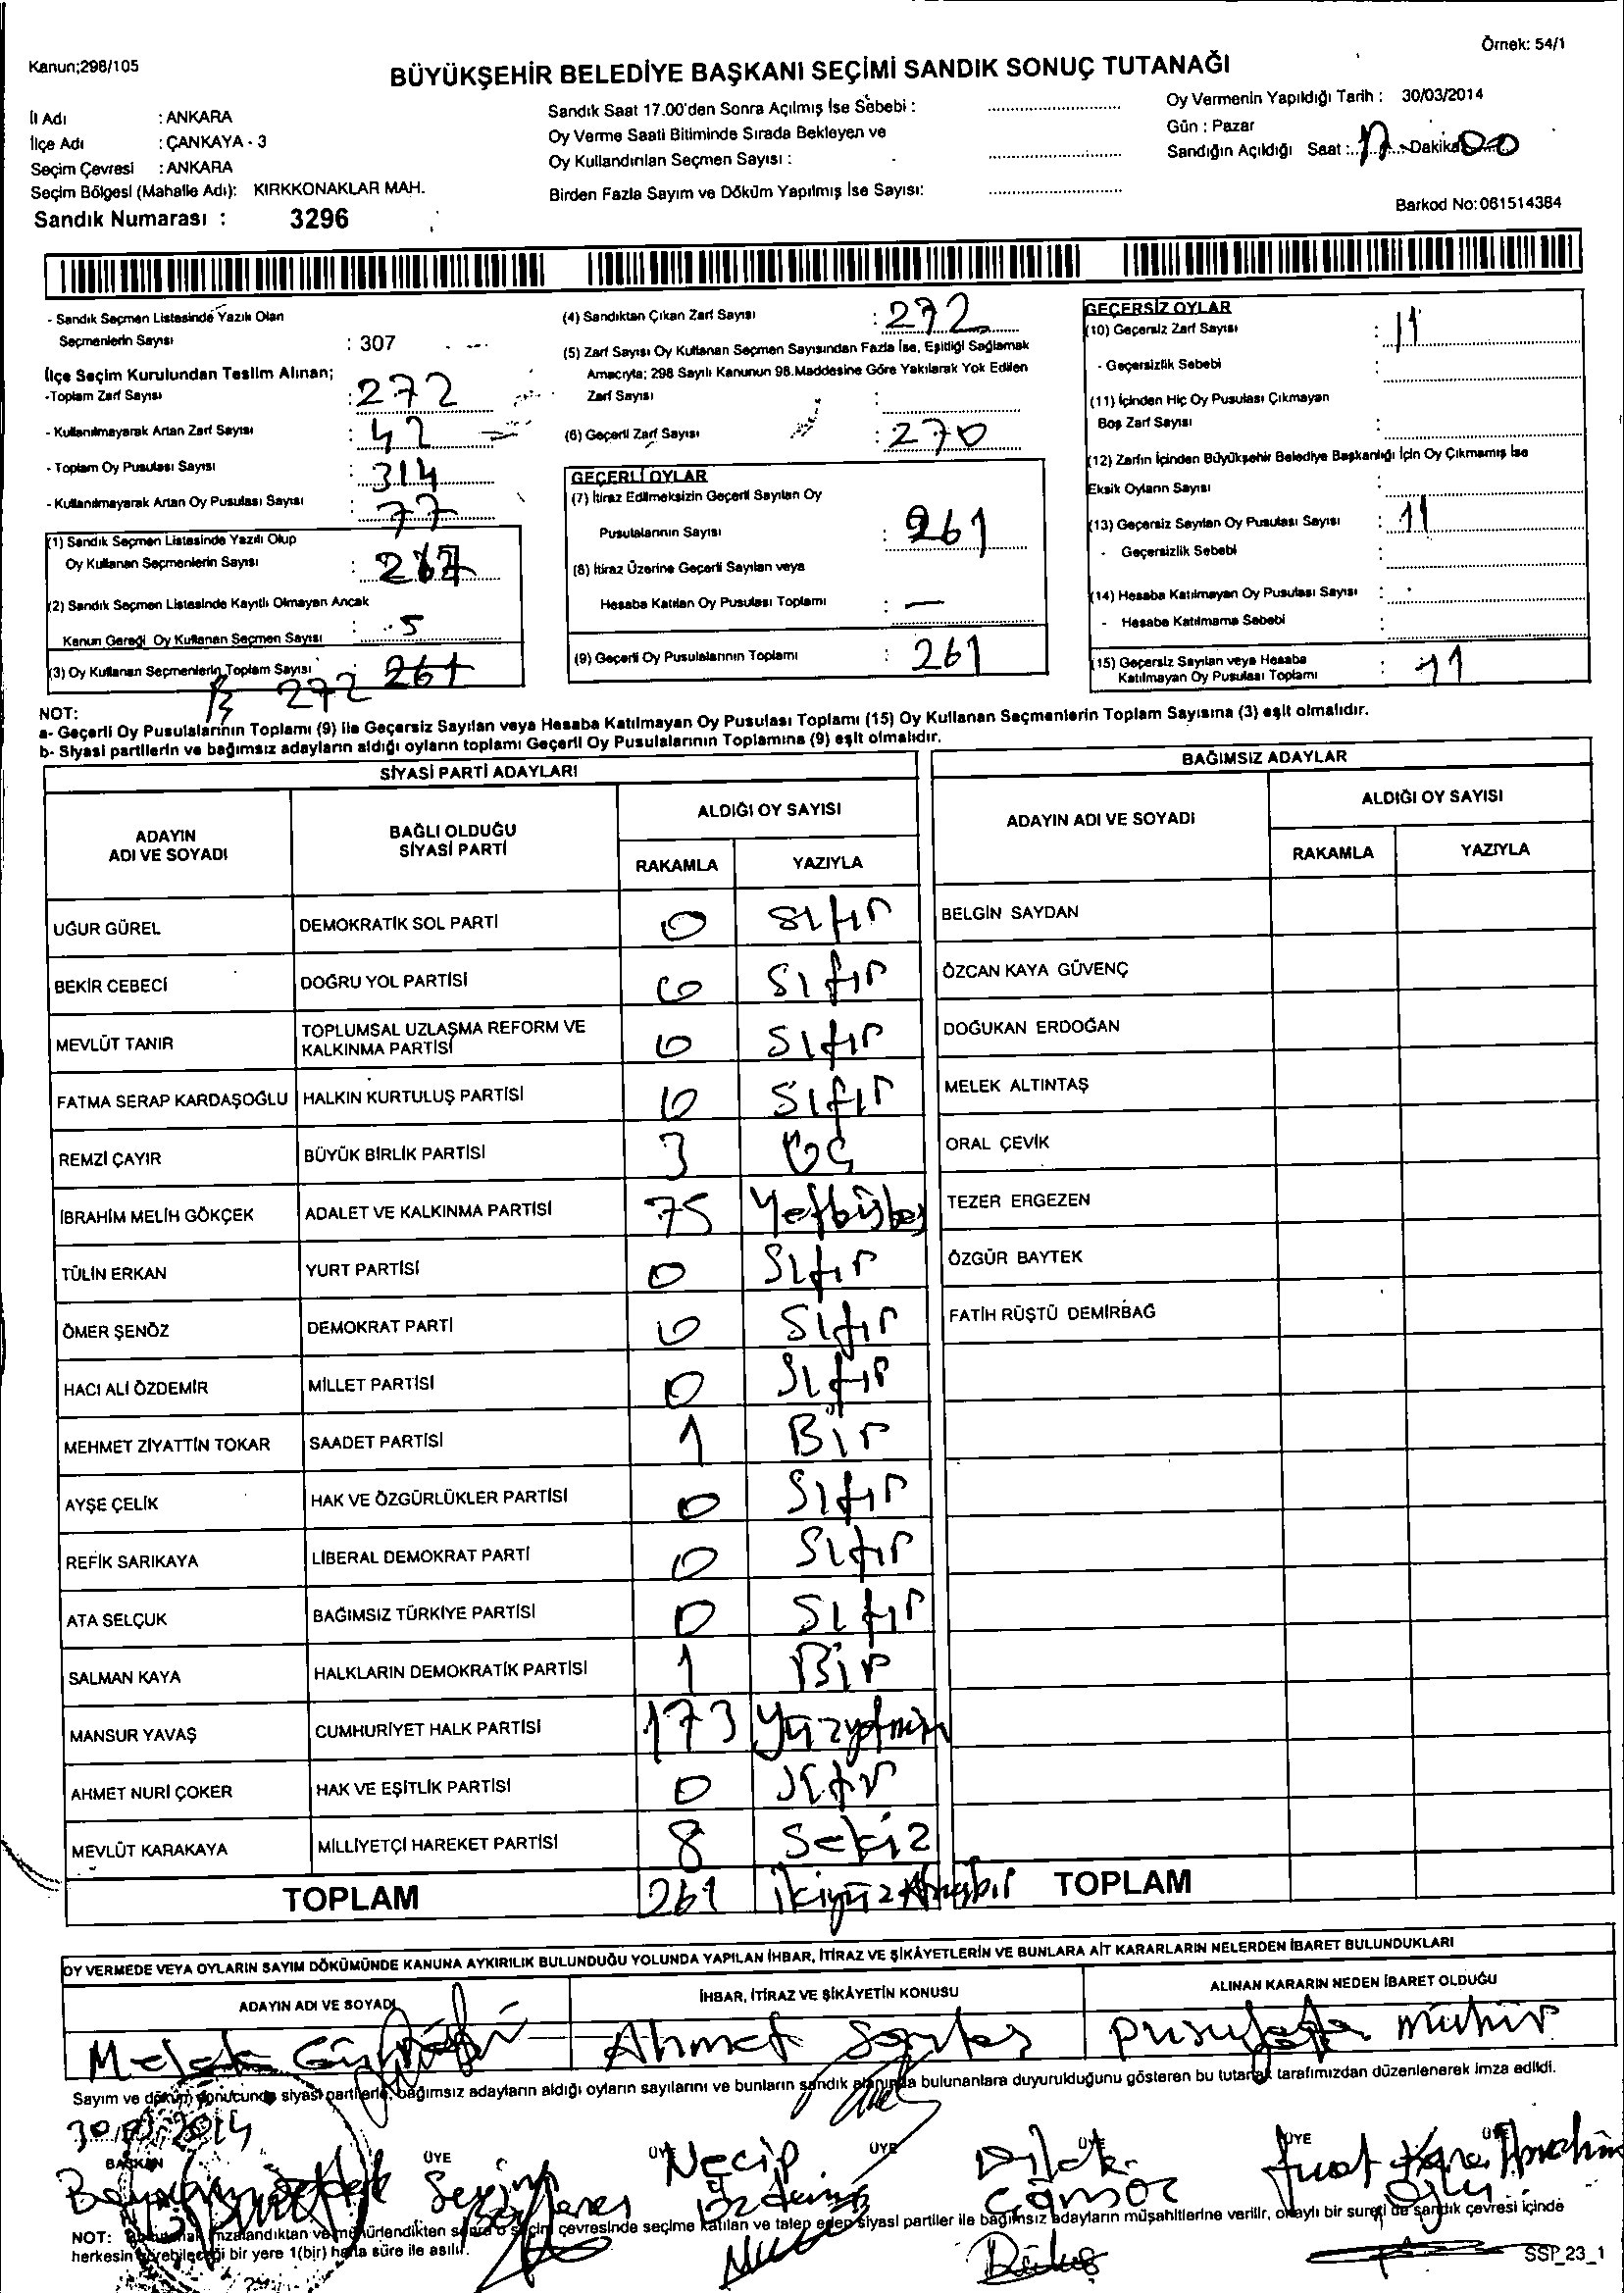 Kanun;298/105
Örnek: 54/1
BÜYÜKŞEHİR BELEDİYE BAŞKANI SEÇİMİ SANDIK SONUÇ TUTANAĞI
İl Adı : ANKARA
İlçe Adı : ÇANKAYA - 3
Seçim Çevresi : ANKARA
Seçim Bölgesi (Mahalle Adı): KIRKKONAKLAR MAH.
Sandık Numarası : 3296
Sandık Saat 17.00'den Sonra Açılmış İse Sebebi :
Oy Verme Saati Bitiminde Sırada Bekleyen ve
Oy Kullandırılan Seçmen Sayısı :
Birden Fazla Sayım ve Döküm Yapılmış İse Sayısı:
Oy Vermenin Yapıldığı Tarih : 30/03/2014
Gün : Pazar
Sandığın Açıldığı Saat : 17 Dakika 00
Barkod No: 061514384
- Sandık Seçmen Listesinde Yazılı Olan
Seçmenlerin Sayısı : 307
İlçe Seçim Kurulundan Teslim Alınan;
-Toplam Zarf Sayısı : 272
- Kullanılmayarak Artan Zarf Sayısı : 42
- Toplam Oy Pusulası Sayısı : 314
- Kullanılmayarak Artan Oy Pusulası Sayısı : 77
(1) Sandık Seçmen Listesinde Yazılı Olup
Oy Kullanan Seçmenlerin Sayısı : 267
(2) Sandık Seçmen Listesinde Kayıtlı Olmayan Ancak
Kanun Gereği Oy Kullanan Seçmen Sayısı : 5
(3) Oy Kullanan Seçmenlerin Toplam Sayısı : 261
272
(4) Sandıktan Çıkan Zarf Sayısı : 272
(5) Zarf Sayısı Oy Kullanan Seçmen Sayısından Fazla İse, Eşitliği Sağlamak
Amacıyla; 298 Sayılı Kanunun 98.Maddesine Göre Yakılarak Yok Edilen
Zarf Sayısı :
(6) Geçerli Zarf Sayısı : 270
GEÇERLİ OYLAR
(7) İtiraz Edilmeksizin Geçerli Sayılan Oy
Pusulalarının Sayısı : 261
(8) İtiraz Üzerine Geçerli Sayılan veya
Hesaba Katılan Oy Pusulası Toplamı : —
(9) Geçerli Oy Pusulalarının Toplamı : 261
GEÇERSİZ OYLAR
(10) Geçersiz Zarf Sayısı : 11
- Geçersizlik Sebebi :
(11) İçinden Hiç Oy Pusulası Çıkmayan
Boş Zarf Sayısı :
(12) Zarfın İçinden Büyükşehir Belediye Başkanlığı İçin Oy Çıkmamış İse
Eksik Oyların Sayısı :
(13) Geçersiz Sayılan Oy Pusulası Sayısı : 11
- Geçersizlik Sebebi :
(14) Hesaba Katılmayan Oy Pusulası Sayısı :
- Hesaba Katılmama Sebebi :
(15) Geçersiz Sayılan veya Hesaba
Katılmayan Oy Pusulası Toplamı : 11
NOT:
a- Geçerli Oy Pusulalarının Toplamı (9) ile Geçersiz Sayılan veya Hesaba Katılmayan Oy Pusulası Toplamı (15) Oy Kullanan Seçmenlerin Toplam Sayısına (3) eşit olmalıdır.
b- Siyasi partilerin ve bağımsız adayların aldığı oyların toplamı Geçerli Oy Pusulalarının Toplamına (9) eşit olmalıdır.
SİYASİ PARTİ ADAYLARI
ADAYIN ADI VE SOYADI
BAĞLI OLDUĞU SİYASİ PARTİ
ALDIĞI OY SAYISI
RAKAMLA YAZIYLA
UĞUR GÜREL DEMOKRATİK SOL PARTİ 0 Sıfır
BEKİR CEBECİ DOĞRU YOL PARTİSİ 0 Sıfır
MEVLÜT TANIR TOPLUMSAL UZLAŞMA REFORM VE KALKINMA PARTİSİ 0 Sıfır
FATMA SERAP KARDAŞOĞLU HALKIN KURTULUŞ PARTİSİ 0 Sıfır
REMZİ ÇAYIR BÜYÜK BİRLİK PARTİSİ 3 Üç
İBRAHİM MELİH GÖKÇEK ADALET VE KALKINMA PARTİSİ 75
TÜLİN ERKAN YURT PARTİSİ 0 Sıfır
ÖMER ŞENÖZ DEMOKRAT PARTİ 0 Sıfır
HACI ALİ ÖZDEMİR MİLLET PARTİSİ 0 Sıfır
MEHMET ZİYATTİN TOKAR SAADET PARTİSİ 1 Bir
AYŞE ÇELİK HAK VE ÖZGÜRLÜKLER PARTİSİ 0 Sıfır
REFİK SARIKAYA LİBERAL DEMOKRAT PARTİ 0 Sıfır
ATA SELÇUK BAĞIMSIZ TÜRKİYE PARTİSİ 0 Sıfır
SALMAN KAYA HALKLARIN DEMOKRATİK PARTİSİ 1 Bir
MANSUR YAVAŞ CUMHURİYET HALK PARTİSİ 173
AHMET NURİ ÇOKER HAK VE EŞİTLİK PARTİSİ 0 Sıfır
MEVLÜT KARAKAYA MİLLİYETÇİ HAREKET PARTİSİ 8 Sekiz
TOPLAM 261 ikiyüzAltmışbir
BAĞIMSIZ ADAYLAR
ADAYIN ADI VE SOYADI
ALDIĞI OY SAYISI
RAKAMLA YAZIYLA
BELGİN SAYDAN
ÖZCAN KAYA GÜVENÇ
DOĞUKAN ERDOĞAN
MELEK ALTINTAŞ
ORAL ÇEVİK
TEZER ERGEZEN
ÖZGÜR BAYTEK
FATİH RÜŞTÜ DEMİRBAĞ
TOPLAM
OY VERMEDE VEYA OYLARIN SAYIM DÖKÜMÜNDE KANUNA AYKIRILIK BULUNDUĞU YOLUNDA YAPILAN İHBAR, İTİRAZ VE ŞİKÂYETLERİN VE BUNLARA AİT KARARLARIN NELERDEN İBARET BULUNDUKLARI
ADAYIN ADI VE SOYADI
İHBAR, İTİRAZ VE ŞİKÂYETİN KONUSU
ALINAN KARARIN NEDEN İBARET OLDUĞU
Melek
Ahmet
mühür
Sayım ve döküm sonucunda siyasi partilerle, bağımsız adayların aldığı oyların sayılarını ve bunların sandık alanında bulunanlara duyurulduğunu gösteren bu tutanak tarafımızdan düzenlenerek imza edildi.
BAŞKAN ÜYE ÜYE ÜYE ÜYE ÜYE ÜYE
Necip
Dilek
Fuat
NOT: Bu tutanak imzalandıktan ve mühürlendikten sonra o seçim çevresinde seçime katılan ve talep eden siyasi partiler ile bağımsız adayların müşahitlerine verilir, onaylı bir sureti de sandık çevresi içinde
herkesin görebileceği bir yere 1(bir) hafta süre ile asılır.
SSP_23_1